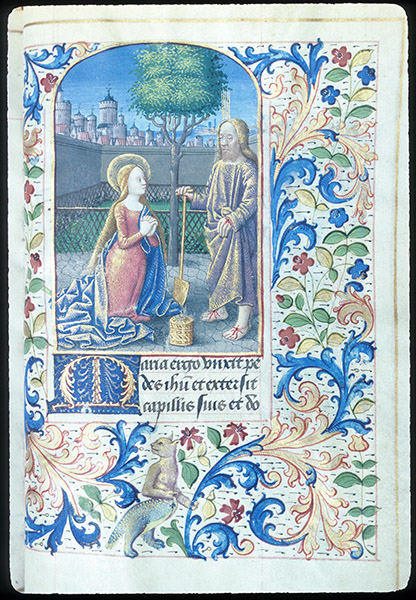 Maria ergo unxit pe
des ihu et extersit
capillis suis et do